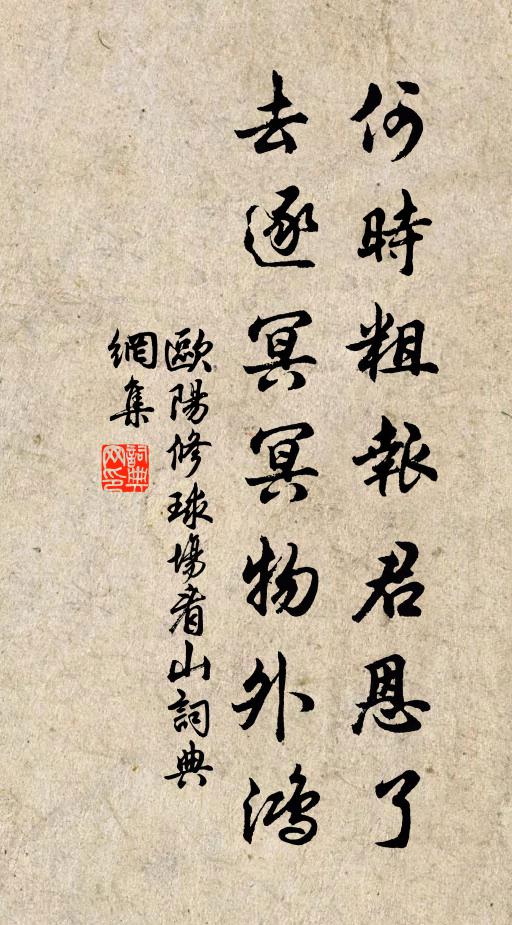 何時粗報君恩了
去逐冥冥物外鴻
歐陽修球場看山詞典
網集
詞典
网印